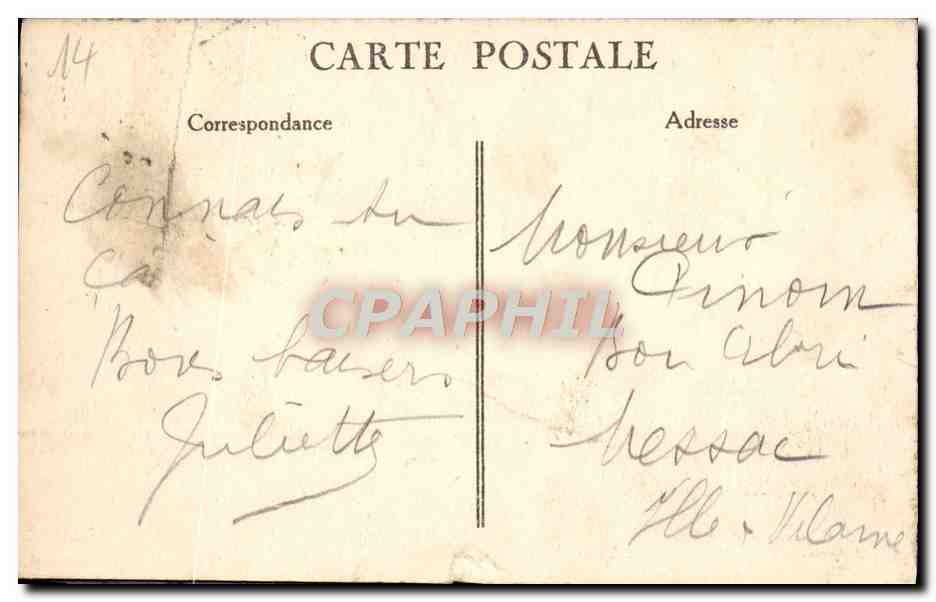 14
CARTE POSTALE
Correspondance
Connais tu
ça
Bons baisers
Juliette
Adresse
Monsieur
Bon Abri
Messac
Ille & Vilaine
CPAPHIL